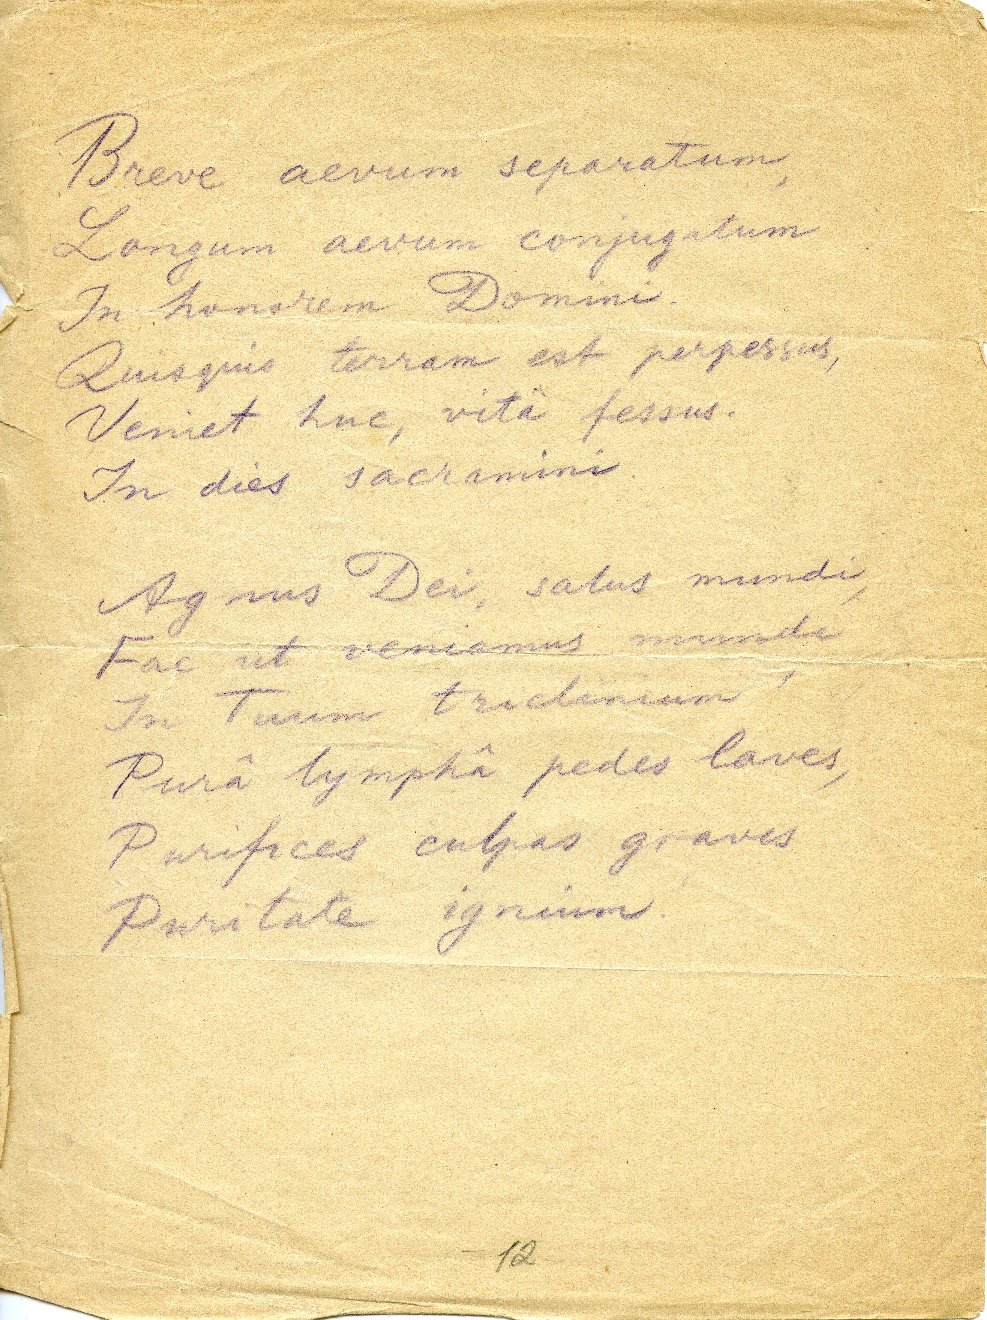 Breve aevum separatum,
Longum aevum conjugatum
In honorem Domini.
Quisquis terram est perpessus,
Veniet huc, vitâ fessus.
In dies sacramini.
Agnus Dei, salus mundi,
Fac ut veniamus mundi
In Tuum triclinium!
Purâ lymphâ pedes laves,
Purifices culpas graves
Puritate ignium.
12